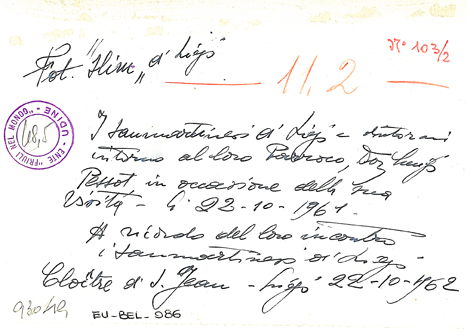 Fot. "Slim" d' Liegi
N° 103/2
11.2
UDINE - ENTE "FRIULI NEL MONDO" -
48,5
I sanmartinesi d' Liegi e dintorni
intorno al loro Parroco, Don Luigi
Pessot in occasione della sua
visita - lì 22-10-1961.
A ricordo del loro incontro
i sanmartinesi di Liegi
Cloître d' S. Jean - Liegi 22-10-1962
EU-BEL-986